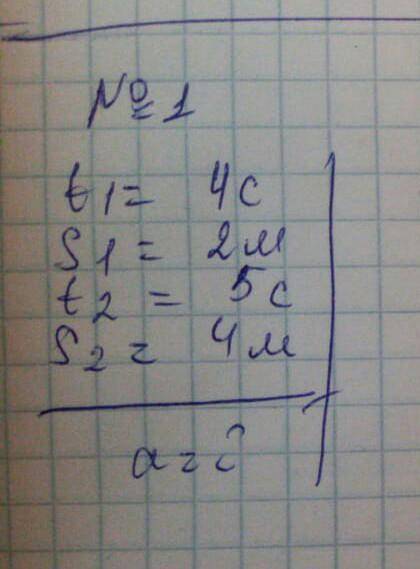 № 1
t1 = 4с
S1 = 2м
t2 = 5с
S2 = 4м
a = ?